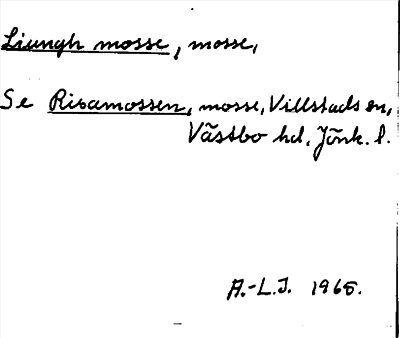 Liungh mosse, mosse,
Se Risamossen, mosse, Villstads sn,
Västbo hd, Jönk. l.
A.-L.J. 1965.